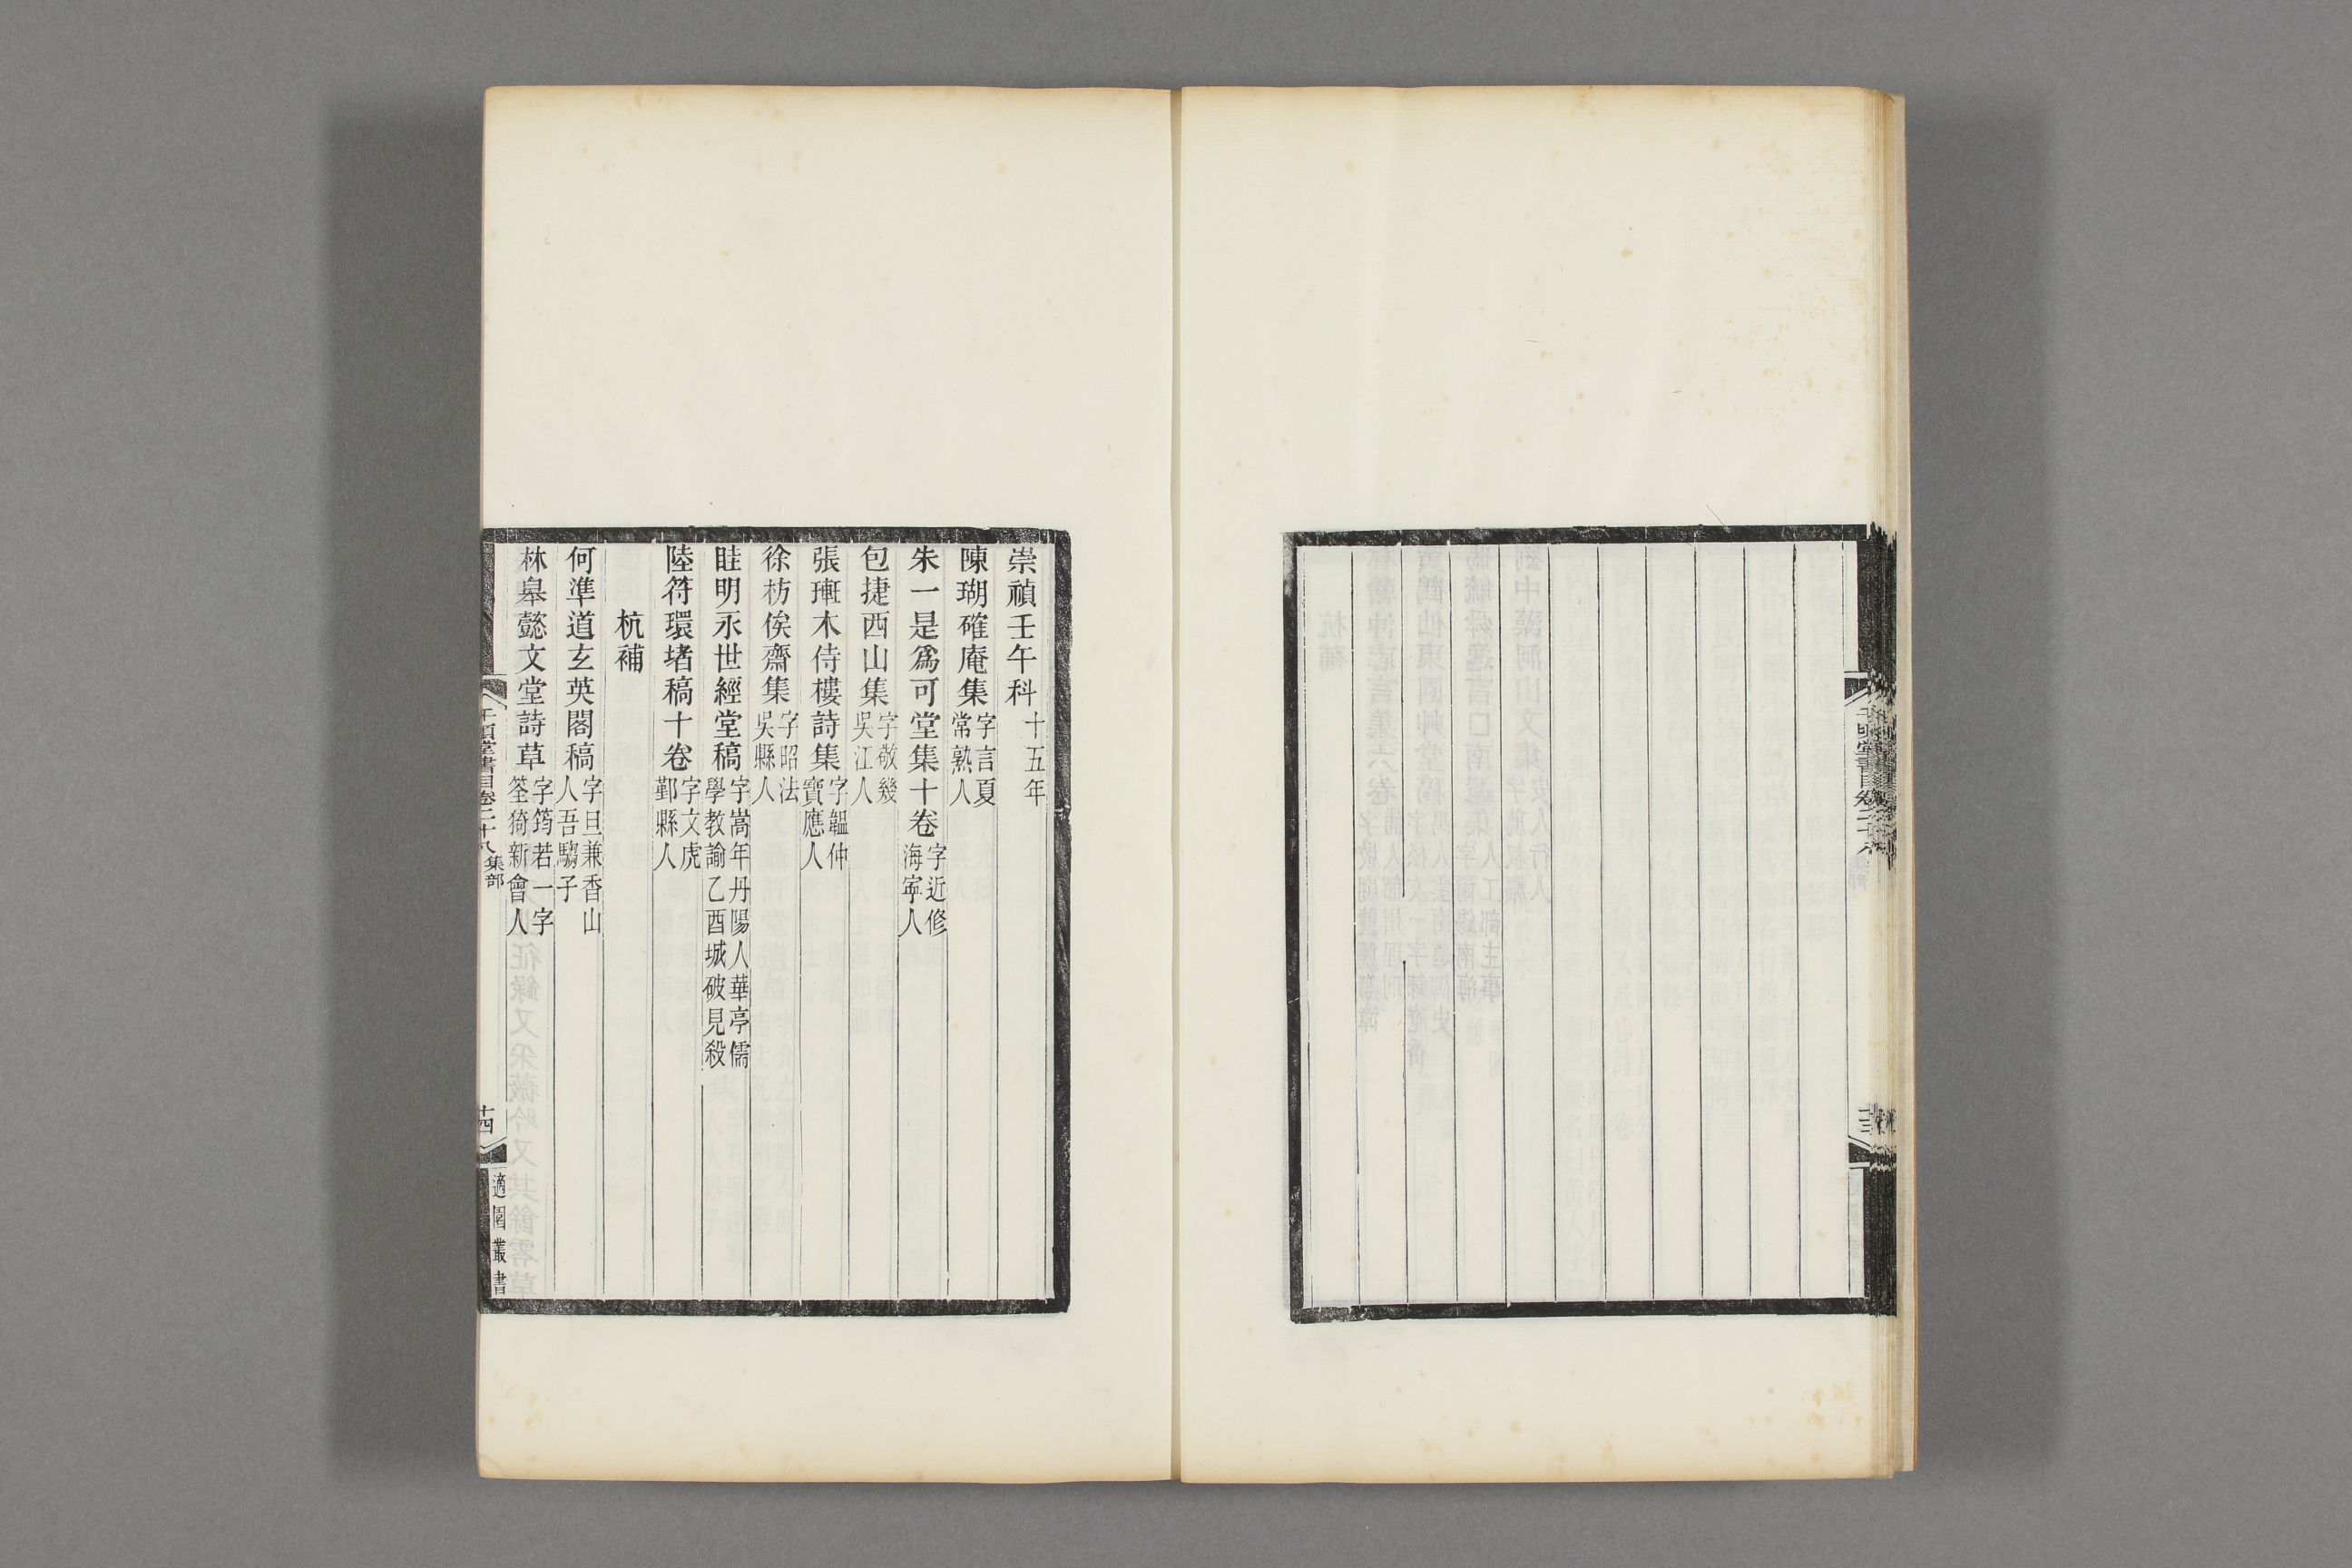 崇禎壬午科十五年
陳瑚確庵集字言夏常熟人
朱一是爲可堂集十卷字近修海寧人
包捷西山集字敬幾吳江人
張㻞木侍樓詩集字韞仲寶應人
徐枋俟齋集字昭法吳縣人
眭明永世經堂稿字嵩年丹陽人華亭儒學教諭乙酉城破見殺
陸符環堵稿十卷字文虎鄞縣人
杭補
何準道玄英閣稿字旦兼香山人吾騶子
林皋懿文堂詩草字筠若一字筌猗新會人
千頃堂書目卷二十八集部
十四
適園叢書